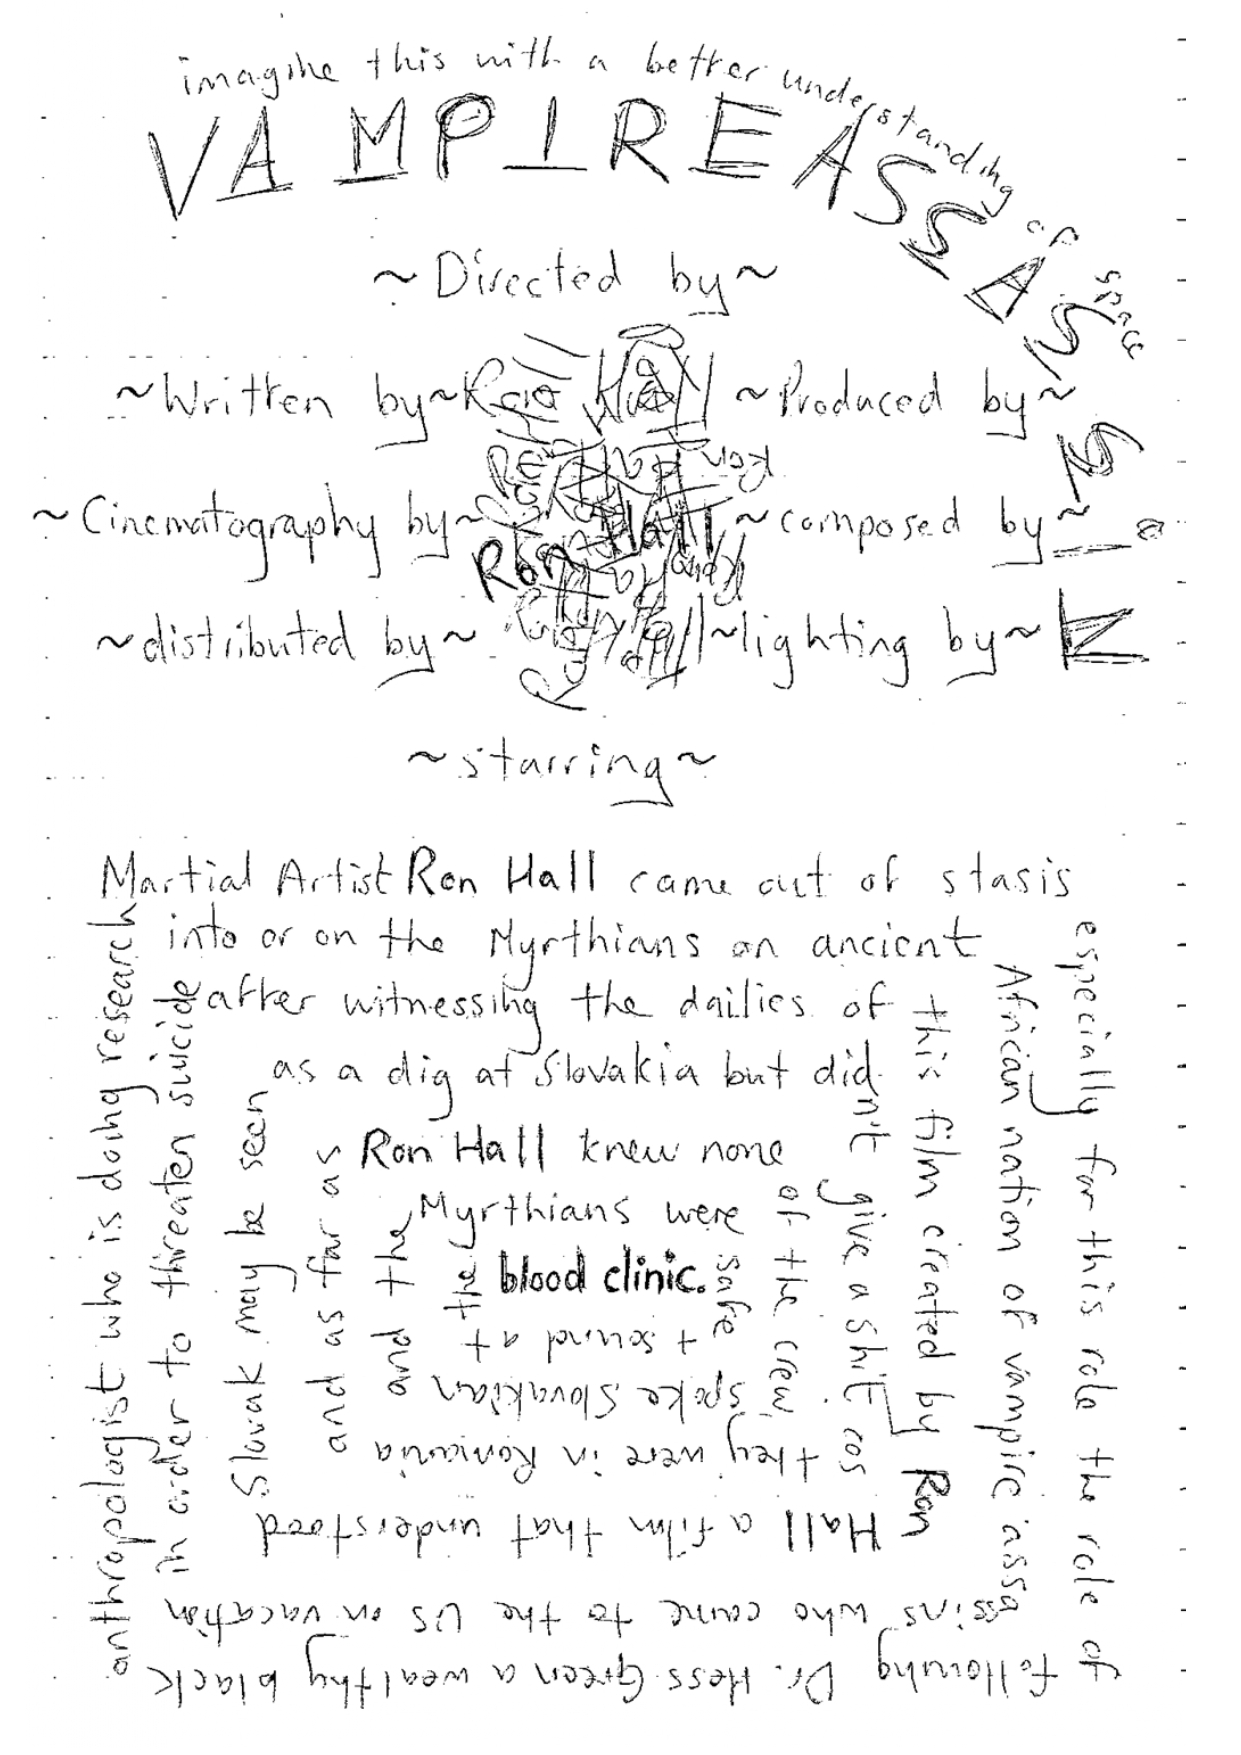 imagine this with a better understanding of space
VAMPIREASSASSIN
~Directed by~
~Written by~
Ron Hall
~Produced by~
~Cinematography by~
Ron Hall
~composed by~
~distributed by~
~lighting by~
~starring~
Martial Artist Ron Hall came out of stasis
especially for this role the role of
following Dr. Hess Green a wealthy black
anthropologist who is doing research
into or on the Myrthians an ancient
African nation of vampire ass
assins who came to the US on vacation
in order to threaten suicide
after witnessing the dailies of
this film created by Ron
Hall a film that understood
Slovak may be seen
as a dig at Slovakia but did
n't give a shit cos
they were in Romania
and as far as
Ron Hall knew none
of the crew
spoke Slovakian
and the
Myrthians were
safe
+ sound at
the
blood clinic.